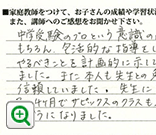 ■家庭教師をつけて、お子さんの成績や学習状
また、講師へのご感想をお聞かせ下さい。
中学受験のプロという意識の
もちろん、全活的な指導をし
やるべきことを計画的に示して
ました。また本人も先生との
信頼していました。先生に
ヶ月でサピックスのクラスも
うになりました